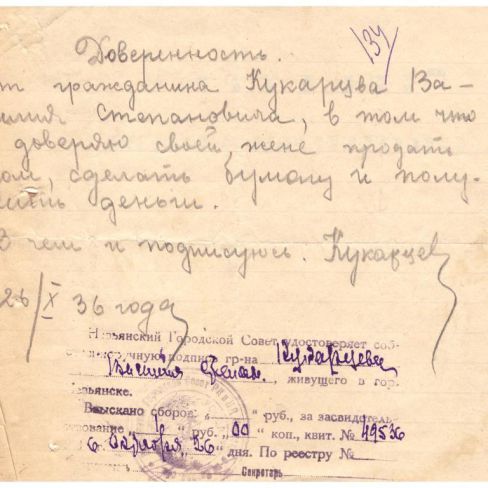 134
Доверенность.
от гражданина Кукарцева Ва-
илия Степановича, в том что
доверяю своей жене продать
ом, сделать бумагу и полу-
чить деньги.
В чем и подписуюсь. Кукарцев
26/X 36 года
Невьянский Городской Совет удостоверяет соб-
ственноручную подпись гр-на Кукарцева
Василия Степан. живущего в гор.
Невьянске.
Взыскано сборов: „ “ руб., за засвидетель-
ствование „ “ руб. 00 коп., квит. № 49536
36 дня. По реестру №
Секретарь